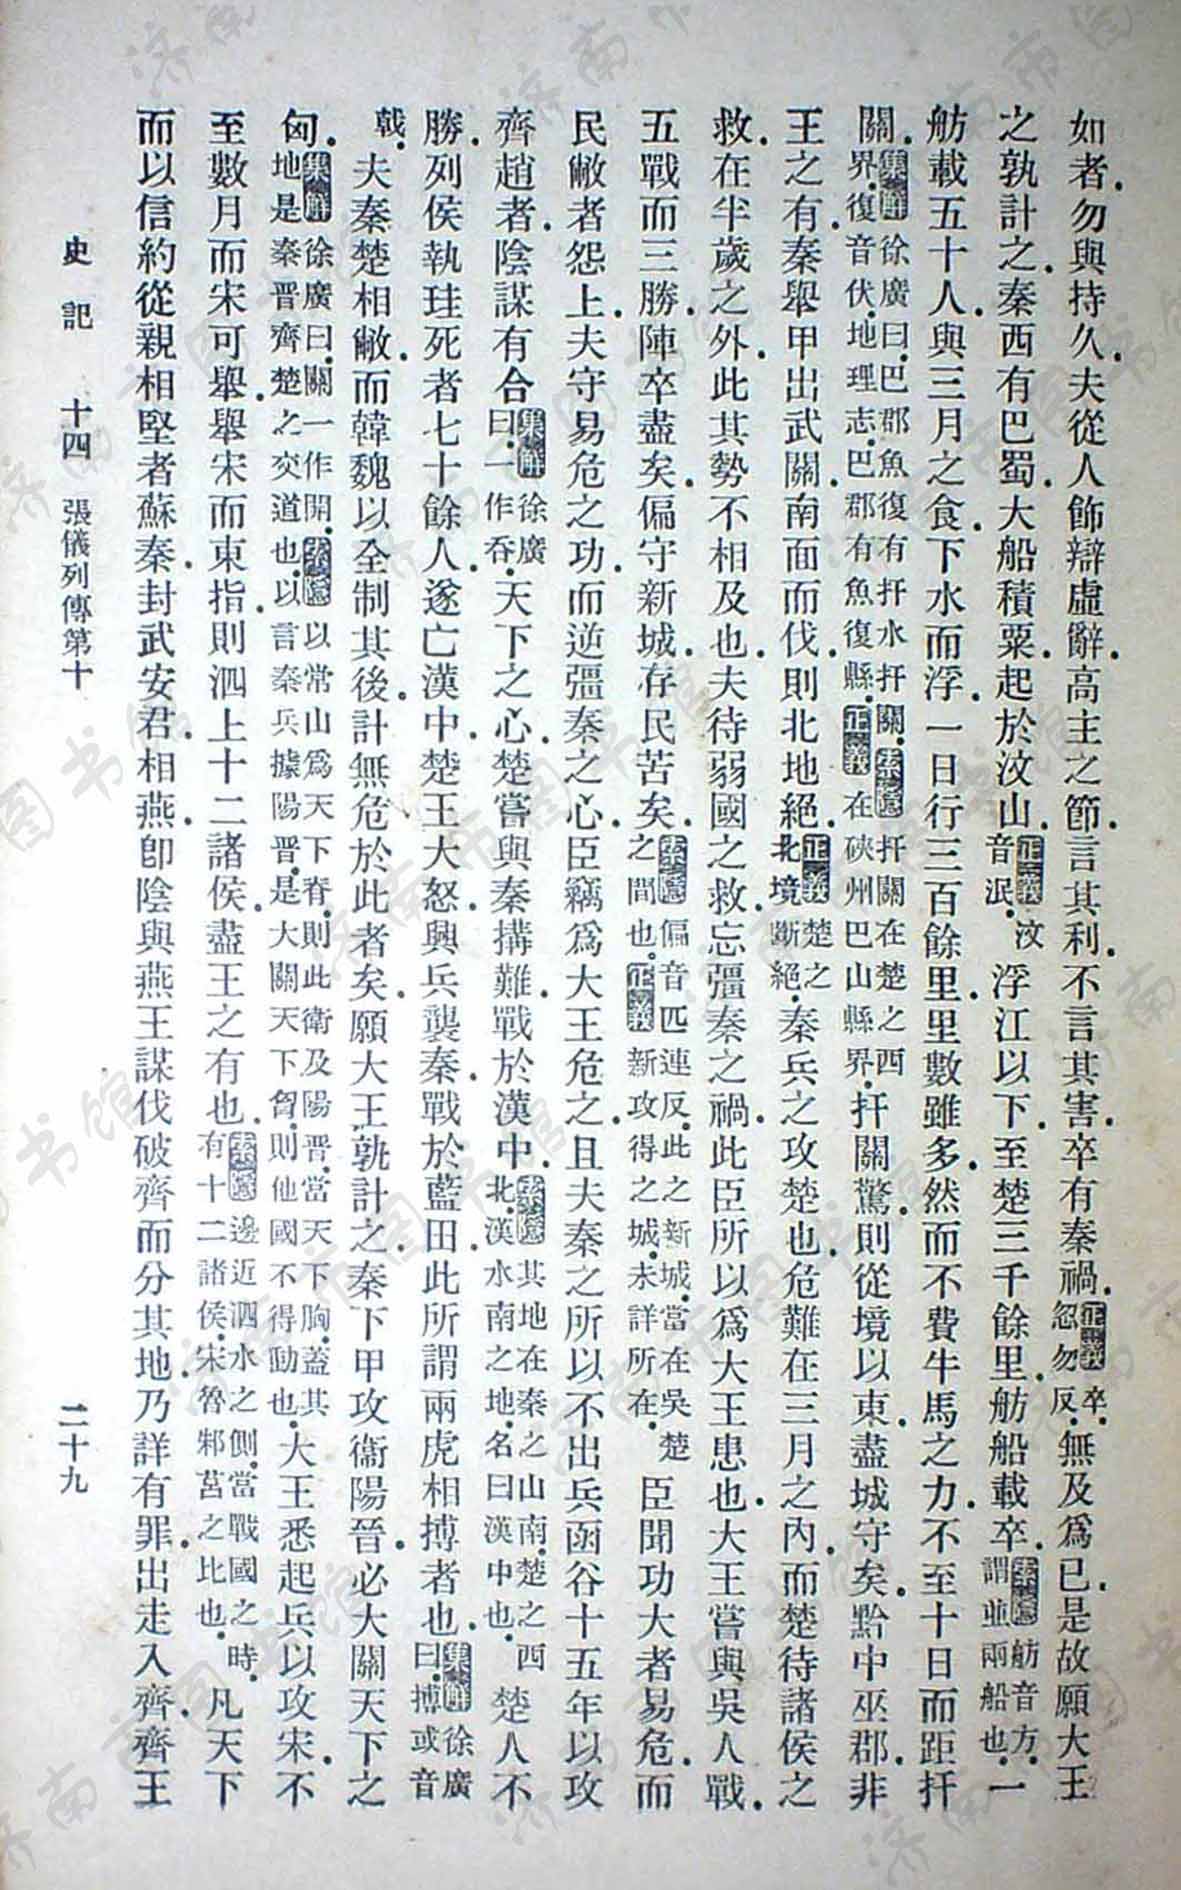 如者.勿與持久.夫從人飾辯虛辭.高主之節.言其利.不言其害.卒有秦禍.正義卒.忽勿反.無及爲已.是故願大王
之孰計之.秦西有巴蜀.大船積粟.起於汶山.正義汶音泯.浮江以下.至楚三千餘里.舫船載卒.索隱舫音方.謂並兩船也.一
舫載五十人.與三月之食.下水而浮.一日行三百餘里.里數雖多.然而不費牛馬之力.不至十日而距扞
關.集解徐廣曰.巴郡魚復有扞水扞關.索隱扞關在楚之西界.復音伏.地理志.巴郡有魚復縣.正義在硤州巴山縣界.扞關驚.則從境以東.盡城守矣.黔中巫郡.非
王之有.秦舉甲出武關.南面而伐.則北地絕.正義楚之北境斷絕.秦兵之攻楚也.危難在三月之內.而楚待諸侯之
救.在半歲之外.此其勢不相及也.夫待弱國之救.忘彊秦之禍.此臣所以爲大王患也.大王嘗與吳人戰.
五戰而三勝.陣卒盡矣.偏守新城.存民苦矣.索隱偏音匹連反.此之新城.當在吳楚之間也.正義新攻得之城.未詳所在.臣聞功大者易危.而
民敝者怨上.夫守易危之功.而逆彊秦之心.臣竊爲大王危之.且夫秦之所以不出兵函谷十五年以攻
齊趙者.陰謀有合集解徐廣曰.一作吞.天下之心.楚嘗與秦搆難.戰於漢中.索隱其地在秦之山南.楚之西北.漢水南之地.名曰漢中也.楚人不
勝.列侯執珪死者七十餘人.遂亡漢中.楚王大怒.興兵襲秦.戰於藍田.此所謂兩虎相搏者也.集解徐廣曰.搏或音
戟.夫秦楚相敝.而韓魏以全制其後.計無危於此者矣.願大王孰計之.秦下甲攻衞陽晉.必大關天下之
匈.集解徐廣曰.關一作開.索隱以常山爲天下脊.則此衛及陽晉.當天下胸.蓋其地是秦晉齊楚之交道也.以言秦兵據陽晉.是大關天下胷.則他國不得動也.大王悉起兵以攻宋.不
至數月而宋可舉.舉宋而東指.則泗上十二諸侯.盡王之有也.索隱邊近泗水之側.當戰國之時.有十二諸侯.宋魯邾莒之比也.凡天下
而以信約從親相堅者蘇秦.封武安君.相燕.卽陰與燕王謀伐破齊而分其地.乃詳有罪.出走入齊.齊王
史記 十四 張儀列傳第十 二十九